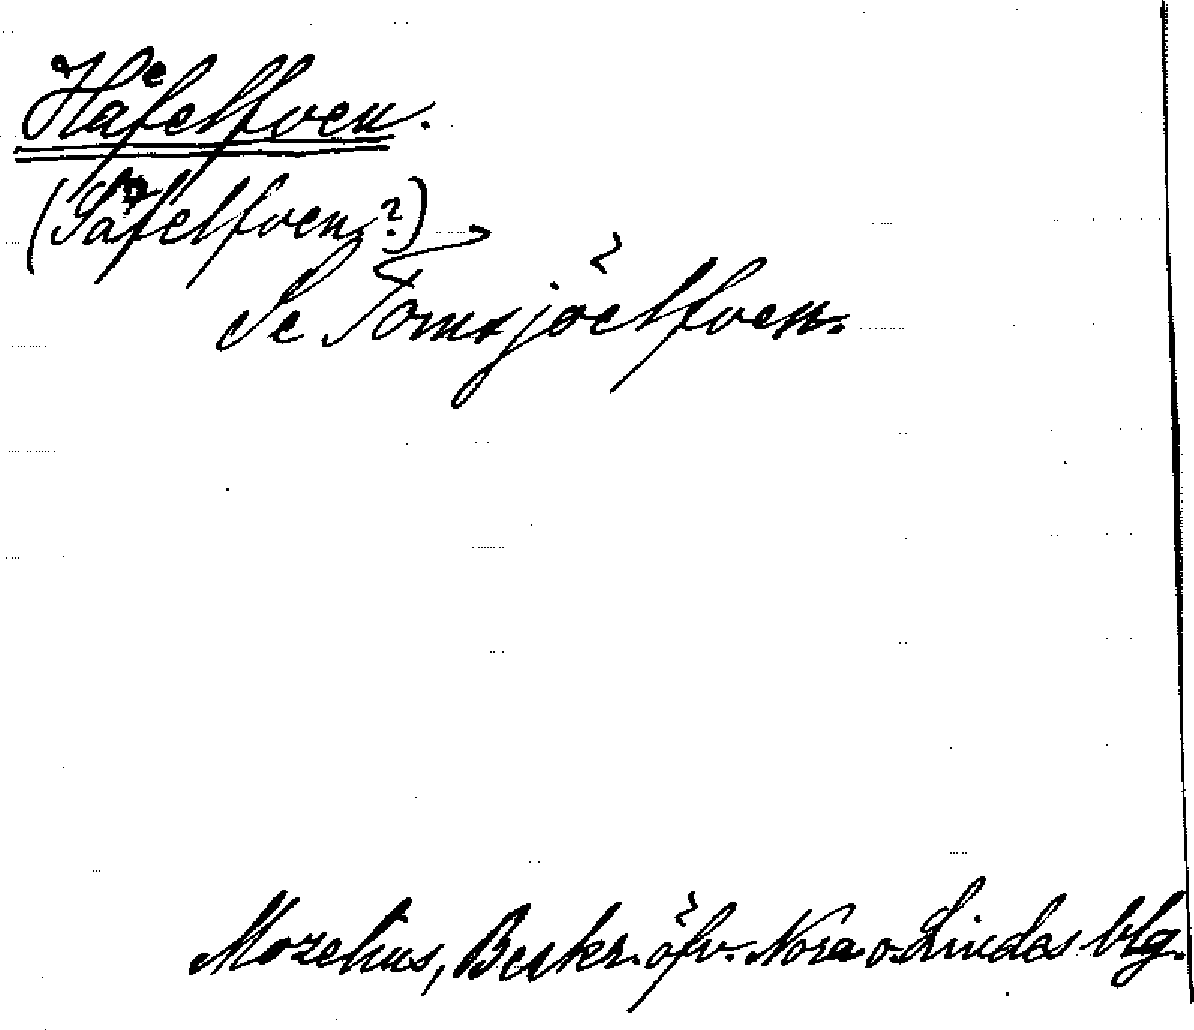 Håfelfven.
(Såfelfven?)
Se Tomsjöelfven.
Mozelius, Beskr. öfv. Nora o. Lindes blg.